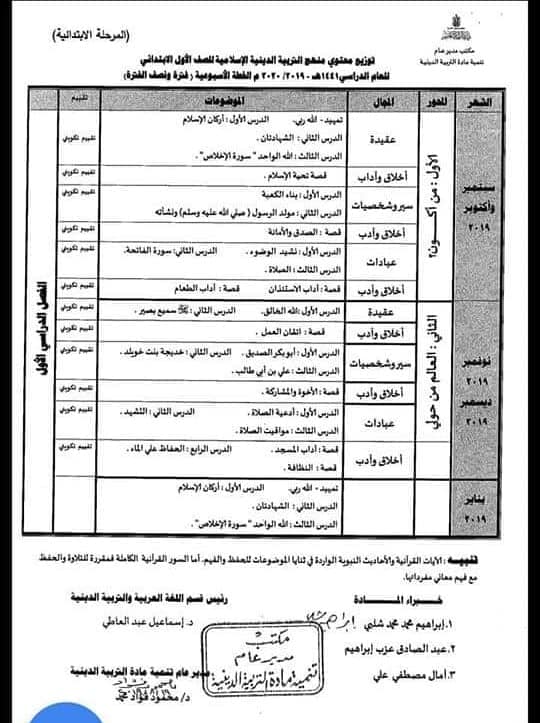 (المرحلة الابتدائية)
مكتب مدير عام
تنمية مادة التربية الدينية
توزيع محتوي منهج التربية الدينية الإسلامية للصف الأول الابتدائي
للعام الدراسي ١٤٤١هـ - ٢٠١٩/ ٢٠٢٠ م الخطة الأسبوعية ( فترة ونصف الفترة )
الشهر المحور المجال الموضوعات تقييم
سبتمبر
وأكتوبر
٢٠١٩
الأول : من أكون؟
عقيدة
تمهيد - الله ربي. الدرس الأول : أركان الإسلام
الدرس الثاني : الشهادتان .
الدرس الثالث : الله الواحد " سورة الإخلاص" .
تقييم تكويني
أخلاق وآداب قصة تحية الإسلام . تقييم تكويني
سير وشخصيات
الدرس الأول : بناء الكعبة
الدرس الثاني : مولد الرسول ( صلي الله عليه وسلم) ونشأته
تقييم تكويني
أخلاق وأدب قصة : الصدق والأمانة
عبادات
الدرس الأول : نشيد الوضوء . الدرس الثاني: سورة الفاتحة.
الدرس الثالث : الصلاة .
تقييم تكويني
أخلاق وأدب قصة : آداب الاستئذان قصة : آداب الطعام تقييم تكويني
نوفمبر
٢٠١٩
ديسمبر
٢٠١٩
الثاني : العالم من حولي
عقيدة الدرس الأول :الله الخالق. الدرس الثاني: سميع بصير . تقييم تكويني
أخلاق وأدب قصة : اتقان العمل . تقييم تكويني
سير وشخصيات
الدرس الأول : أبو بكر الصديق . الدرس الثاني : خديجة بنت خويلد .
الدرس الثالث : علي بن أبي طالب .
تقييم تكويني
أخلاق وأدب قصة : الأخوة والمشاركة . تقييم تكويني
عبادات
الدرس الأول : أدعية الصلاة . الدرس الثاني : التشهد .
الدرس الثالث : مواقيت الصلاة .
تقييم تكويني
أخلاق وأدب
قصة : آداب المسجد . الدرس الرابع : الحفاظ علي الماء .
قصة : النظافة .
تقييم تكويني
يناير
٢٠١٩
تمهيد - الله ربي. الدرس الأول : أركان الإسلام
الدرس الثاني : الشهادتان .
الدرس الثالث : الله الواحد " سورة الإخلاص" .
الفصل الدراسي الأول
تنبيه : الآيات القرآنية والأحاديث النبوية الواردة في ثنايا الموضوعات للحفظ والفهم. أما السور القرآنية الكاملة فمقررة للتلاوة والحفظ
مع فهم معاني مفرداتها.
خبراء المادة
رئيس قسم اللغة العربية والتربية الدينية
١. إبراهيم محمد محمد شلبي
د. إسماعيل عبد العاطي
٢. عبد الصادق عزب إبراهيم
٣. أمال مصطفي علي
مكتب
مدير عام
تنمية مادة التربية الدينية
مدير عام تنمية مادة التربية الدينية
د/ محمود فؤاد محمد